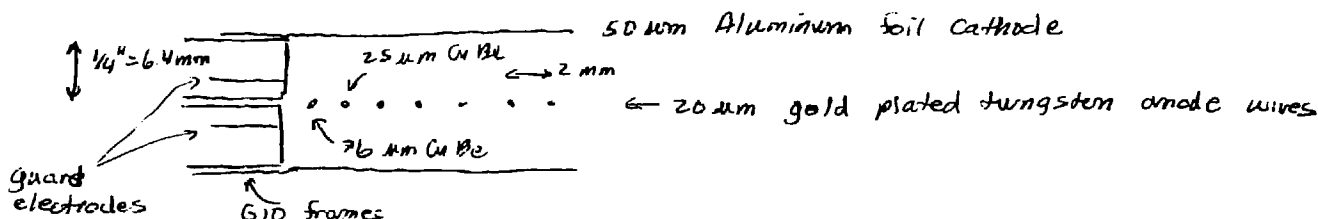 50 µm Aluminum foil cathode
1/4" = 6.4 mm
25 µm CuBe
2 mm
20 µm gold plated tungsten anode wires
76 µm CuBe
guard
electrodes
G10 frames